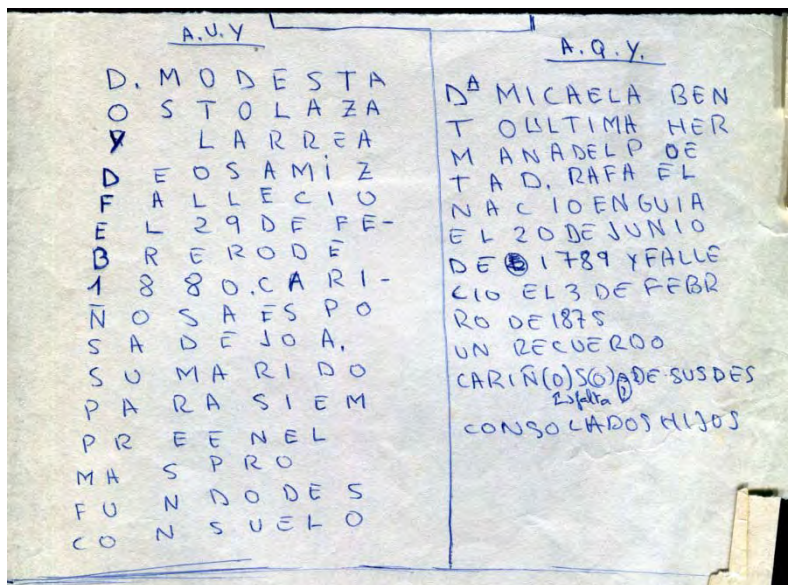 A.U.Y
D. MODESTA
OSTOLAZA
Y LARREA
DEOSAMIZ
FALLECIO
EL 29 DE FE-
BRERODE
1880.CARI-
ÑOSAESPO
SADEJOA.
SU MARIDO
PARA SIEM
PREENEL
MAS PRO
FUNDODES
CONSUELO
A.Q.Y.
Dª MICAELA BEN
TOULTIMA HER
MANADELPOE
TA D. RAFAEL
NACIOENGUIA
EL 20 DE JUNIO
DE 1789 YFALLE
CIO EL 3 DE FEBR
RO DE 1875
UN RECUERDO
CARIÑ(O)S(O) DE SUSDES
CONSOLADOS HIJOS